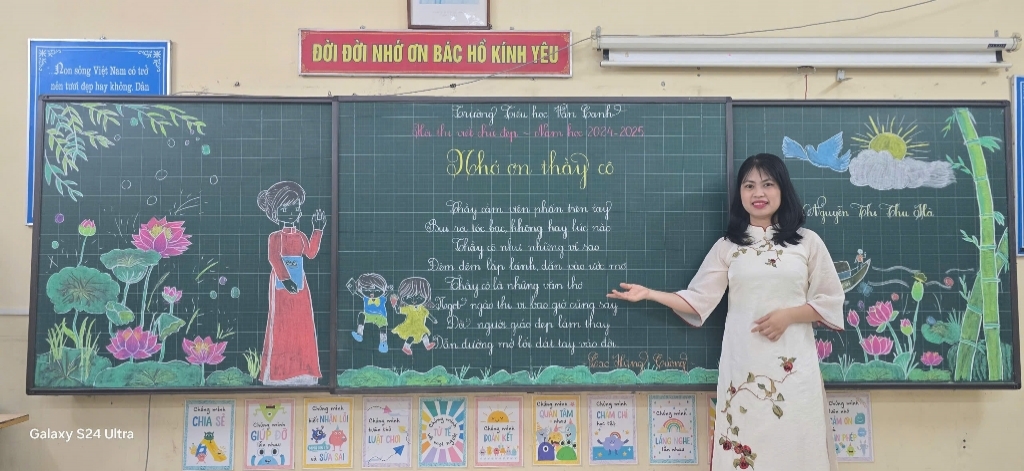 ĐỜI ĐỜI NHỚ ƠN BÁC HỒ KÍNH YÊU
Non sông Việt Nam có trở
nên tươi đẹp hay không, Dân
Trường Tiểu học Văn Canh
Hội thi viết chữ đẹp - Năm học 2024-2025
Nhớ ơn thầy cô
Thầy cầm viên phấn trên tay
bạc, không hay lúc nào
Thầy cô như những vì sao
Đêm đêm lấp lánh, dẫn vào ước mơ
Thầy cô là những vần thơ
Ngọt ngào thi vị bao giờ cũng say
người giáo đẹp làm thay
Dẫn đường mở lối dắt tay vào đời.
Nguyễn Thị Thu Hà
Chúng mình
CHIA SẺ
Chúng mình
GIÚP ĐỠ
lẫn nhau
Chúng mình
biết NHẬN LỖI
và SỬA SAI
Chúng mình
LUẬT CHƠI
TỬ TẾ
Chúng mình
ĐOÀN KẾT
QUAN TÂM
Chúng mình
CHĂM CHỈ
Chúng mình
LẮNG NGHE
Galaxy S24 Ultra